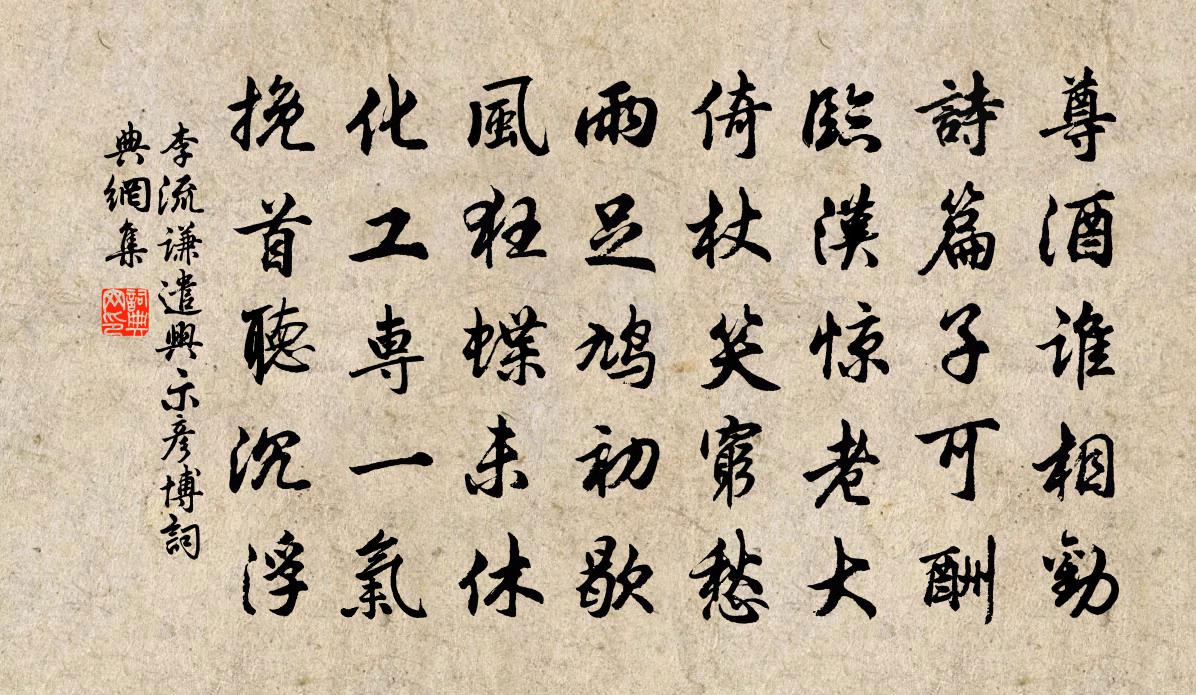 尊酒谁相勸
詩篇子可酬
臨漢惊老大
倚杖笑窮愁
雨足鳩初歇
風狂蝶未休
化工専一氣
挽首聽沉浮
李流謙遣興示彦博詞
典網集
詞典網印